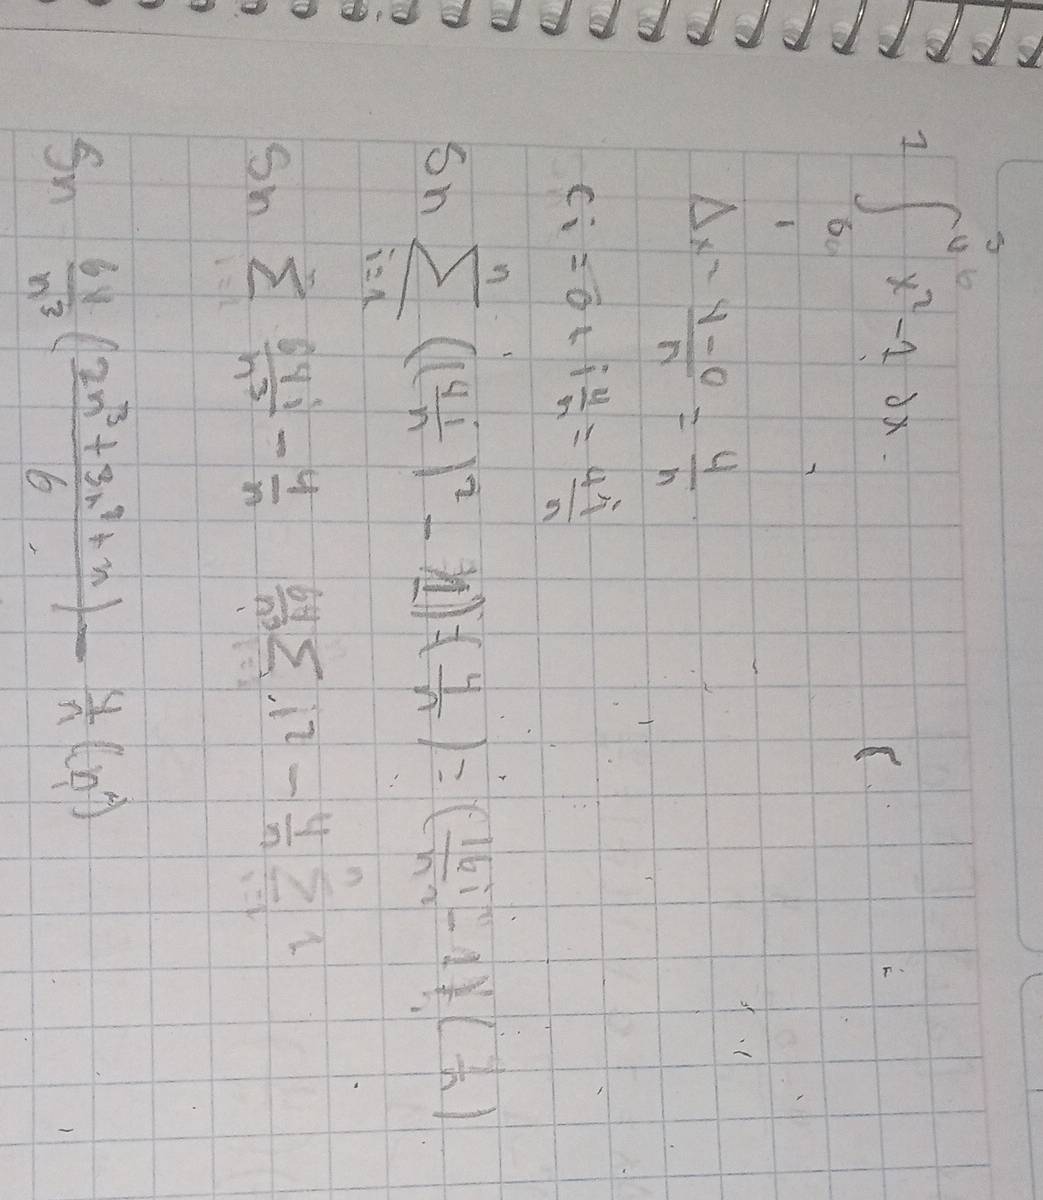 1 ∫₀⁴ x² - 1 dx.
Δx = 4-0/n = 4/n
ci = 0 + i 4/n = 4i/n
Sn ∑ⁿ i=1 ((4i/n)² - 1) (4/n) = (16i²/n² - 1) (4/n)
Sn ∑ i=1 64i²/n³ - 4/n 64/n³ ∑ i=1 i² - 4/n ∑ⁿ i=1 1
Sn 64/n³ (2n³ + 3n² + n / 6) - 4/n (n)